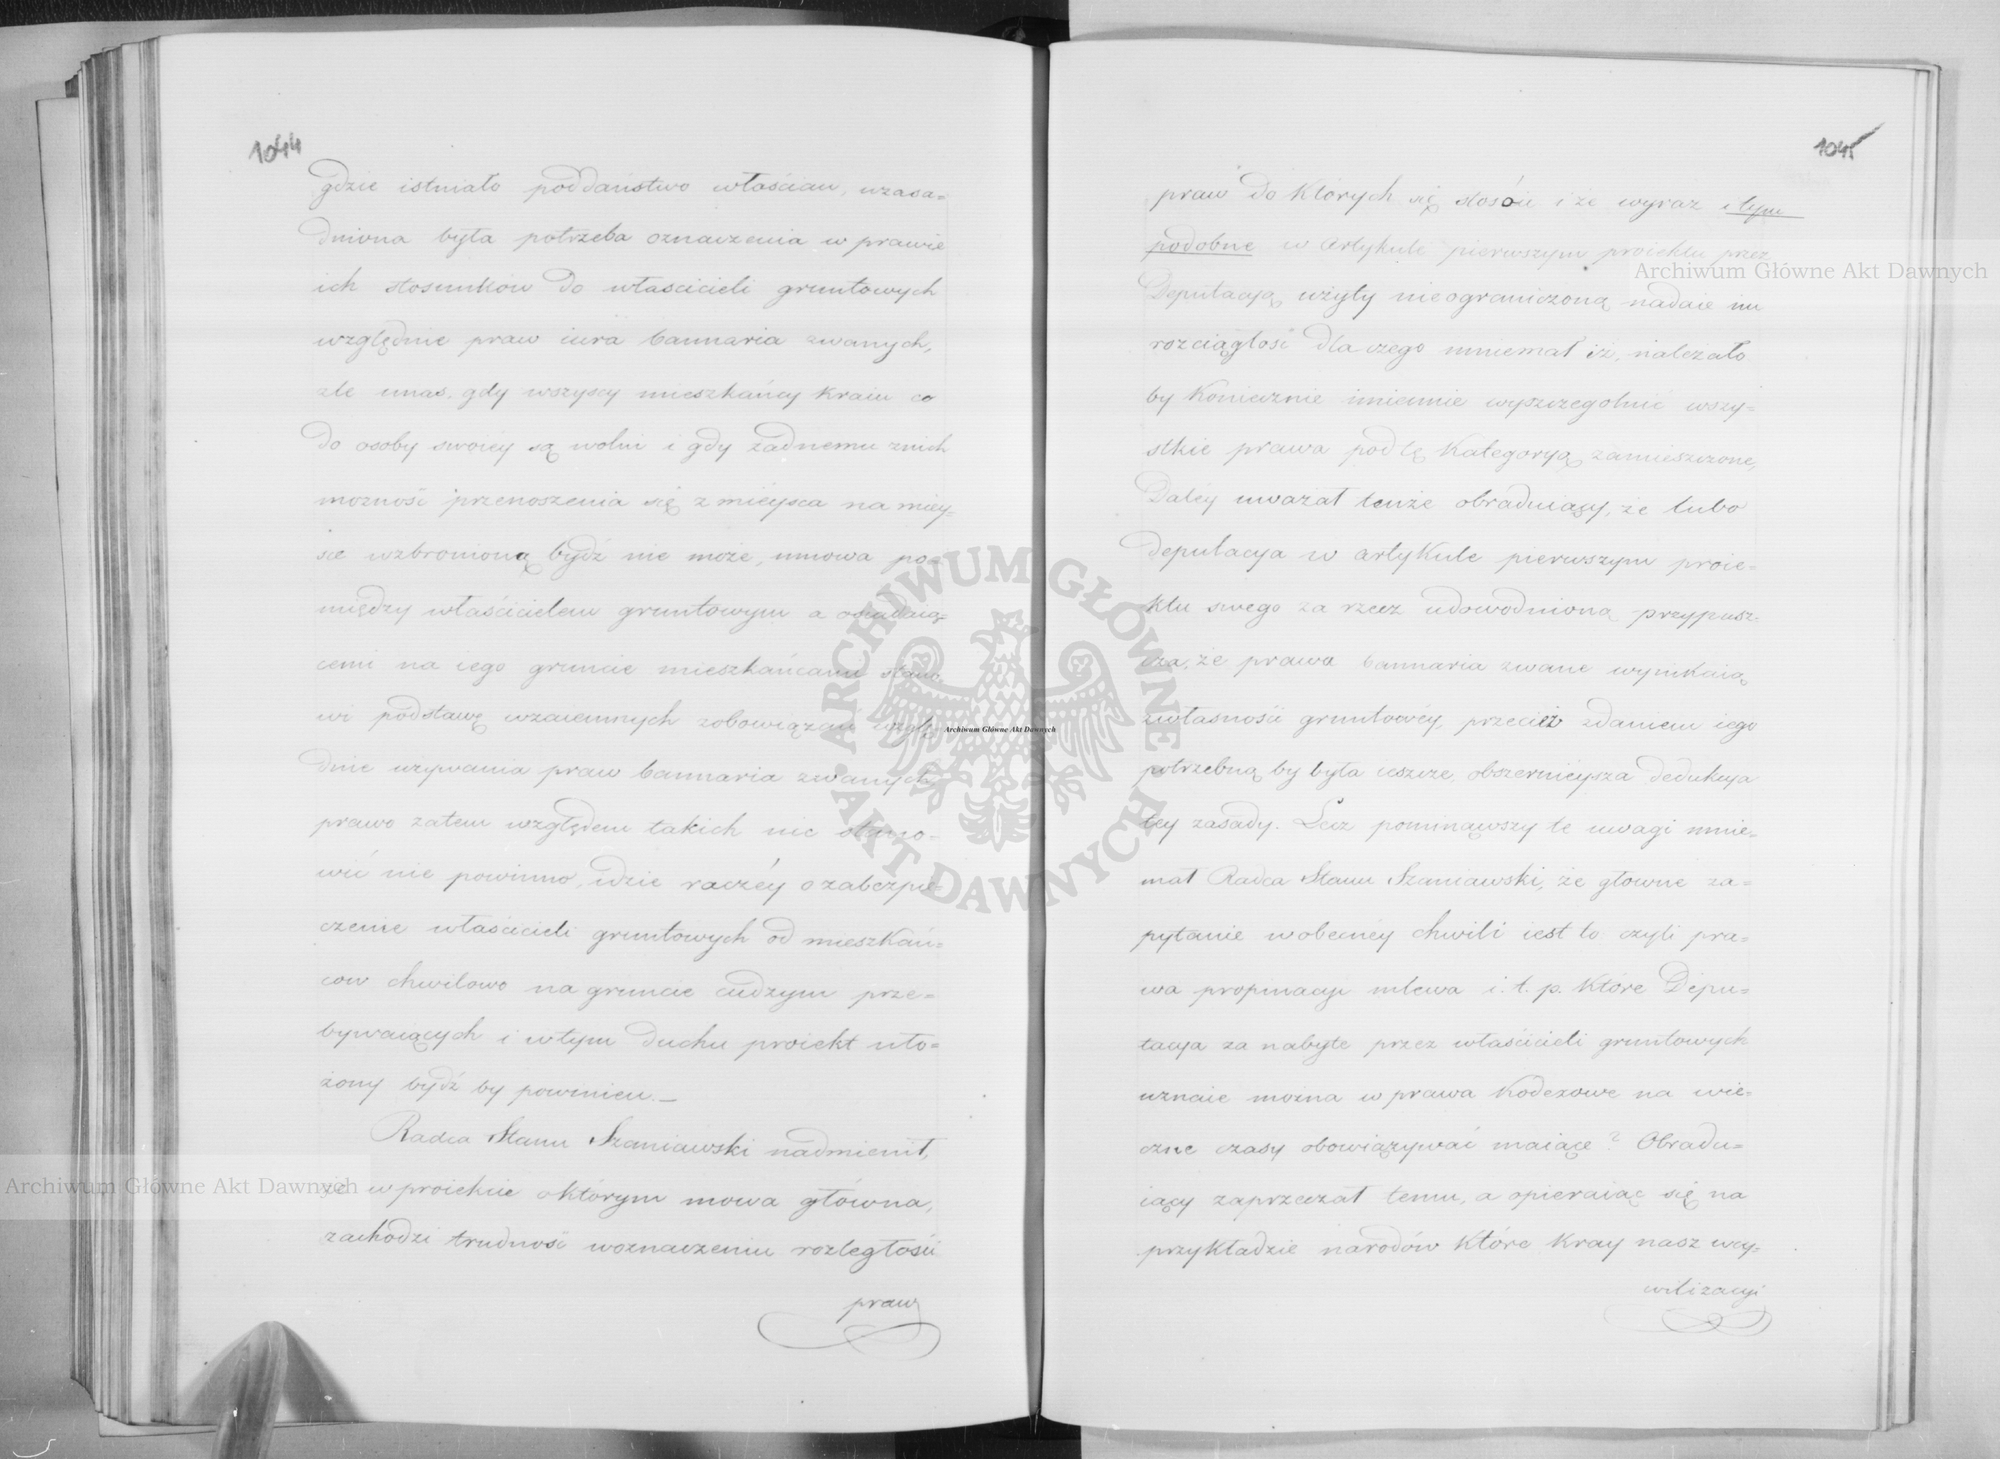 1044
gdzie istniało poddaństwo włościan, uzasa=
dniona była potrzeba oznaczenia w prawie
ich stosunków do właścicieli gruntowych
względnie praw iura bannaria zwanych,
ale unas, gdy wszyscy mieszkańcy kraiu co
do osoby swoiey są wolni i gdy żadnemu znich
możność przenoszenia się z mieysca na miey=
sce wzbronioną bydź nie może, umowa po=
między właścicielem gruntowym a osiadaią=
cemi na iego gruncie mieszkańcami stano=
wi podstawę wzaiemnych zobowiązań wzglę=
dnie używania praw bannaria zwanych,
prawo zatem względem takich nic stano=
wić nie powinno, idzie raczéy o zabezpie=
czenie właścicieli gruntowych od mieszkań=
cow chwilowo na gruncie cudzym prze=
bywaiących i wtym duchu proiekt uło=
żony bydź by powinien. —
Radca Stanu Szaniawski nadmienił,
że wproiekcie októrym mowa główna,
zachodzi trudność woznaczeniu rozległości
praw
1045
praw do których się stosuie i że wyraz i tym
podobne w Artykule pierwszym proiektu przez
Deputacyą użyty nieograniczoną nadaie im
rozciągłość dla czego mniemał iż, należało
by koniecznie imiennie wyszczególnić wszy=
stkie prawa pod tę kategoryą zamieszczone,
Daléy uważał tenże obraduiący, że lubo
Deputacya w artykule pierwszym proie=
ktu swego za rzecz udowodnioną przypusz=
cza, że prawa bannaria zwane wynikaią
zwłasności gruntowéy, przecież zdaniem iego
potrzebną by była ieszcze, obszernieysza dedukcya
tey zasady. Lecz pominąwszy te uwagi mnie=
mał Radca Stanu Szaniawski, że głowne za=
pytanie wobecnéy chwili iest to czyli pra=
wa propinacyi mlewa i. t. p. które Depu=
tacya za nabyte przez właścicieli gruntowych
uznaie można w prawa kódexowe na wie=
czne czasy obowiązywać maiące? Obradu=
iący zaprzeczał temu, a opieraiąc się na
przykładzie narodów które kray nasz wcy=
wilizacyi
Archiwum Główne Akt Dawnych
Archiwum Główne Akt Dawnych
Archiwum Główne Akt Dawnych
ARCHIWUM GŁÓWNE AKT DAWNYCH